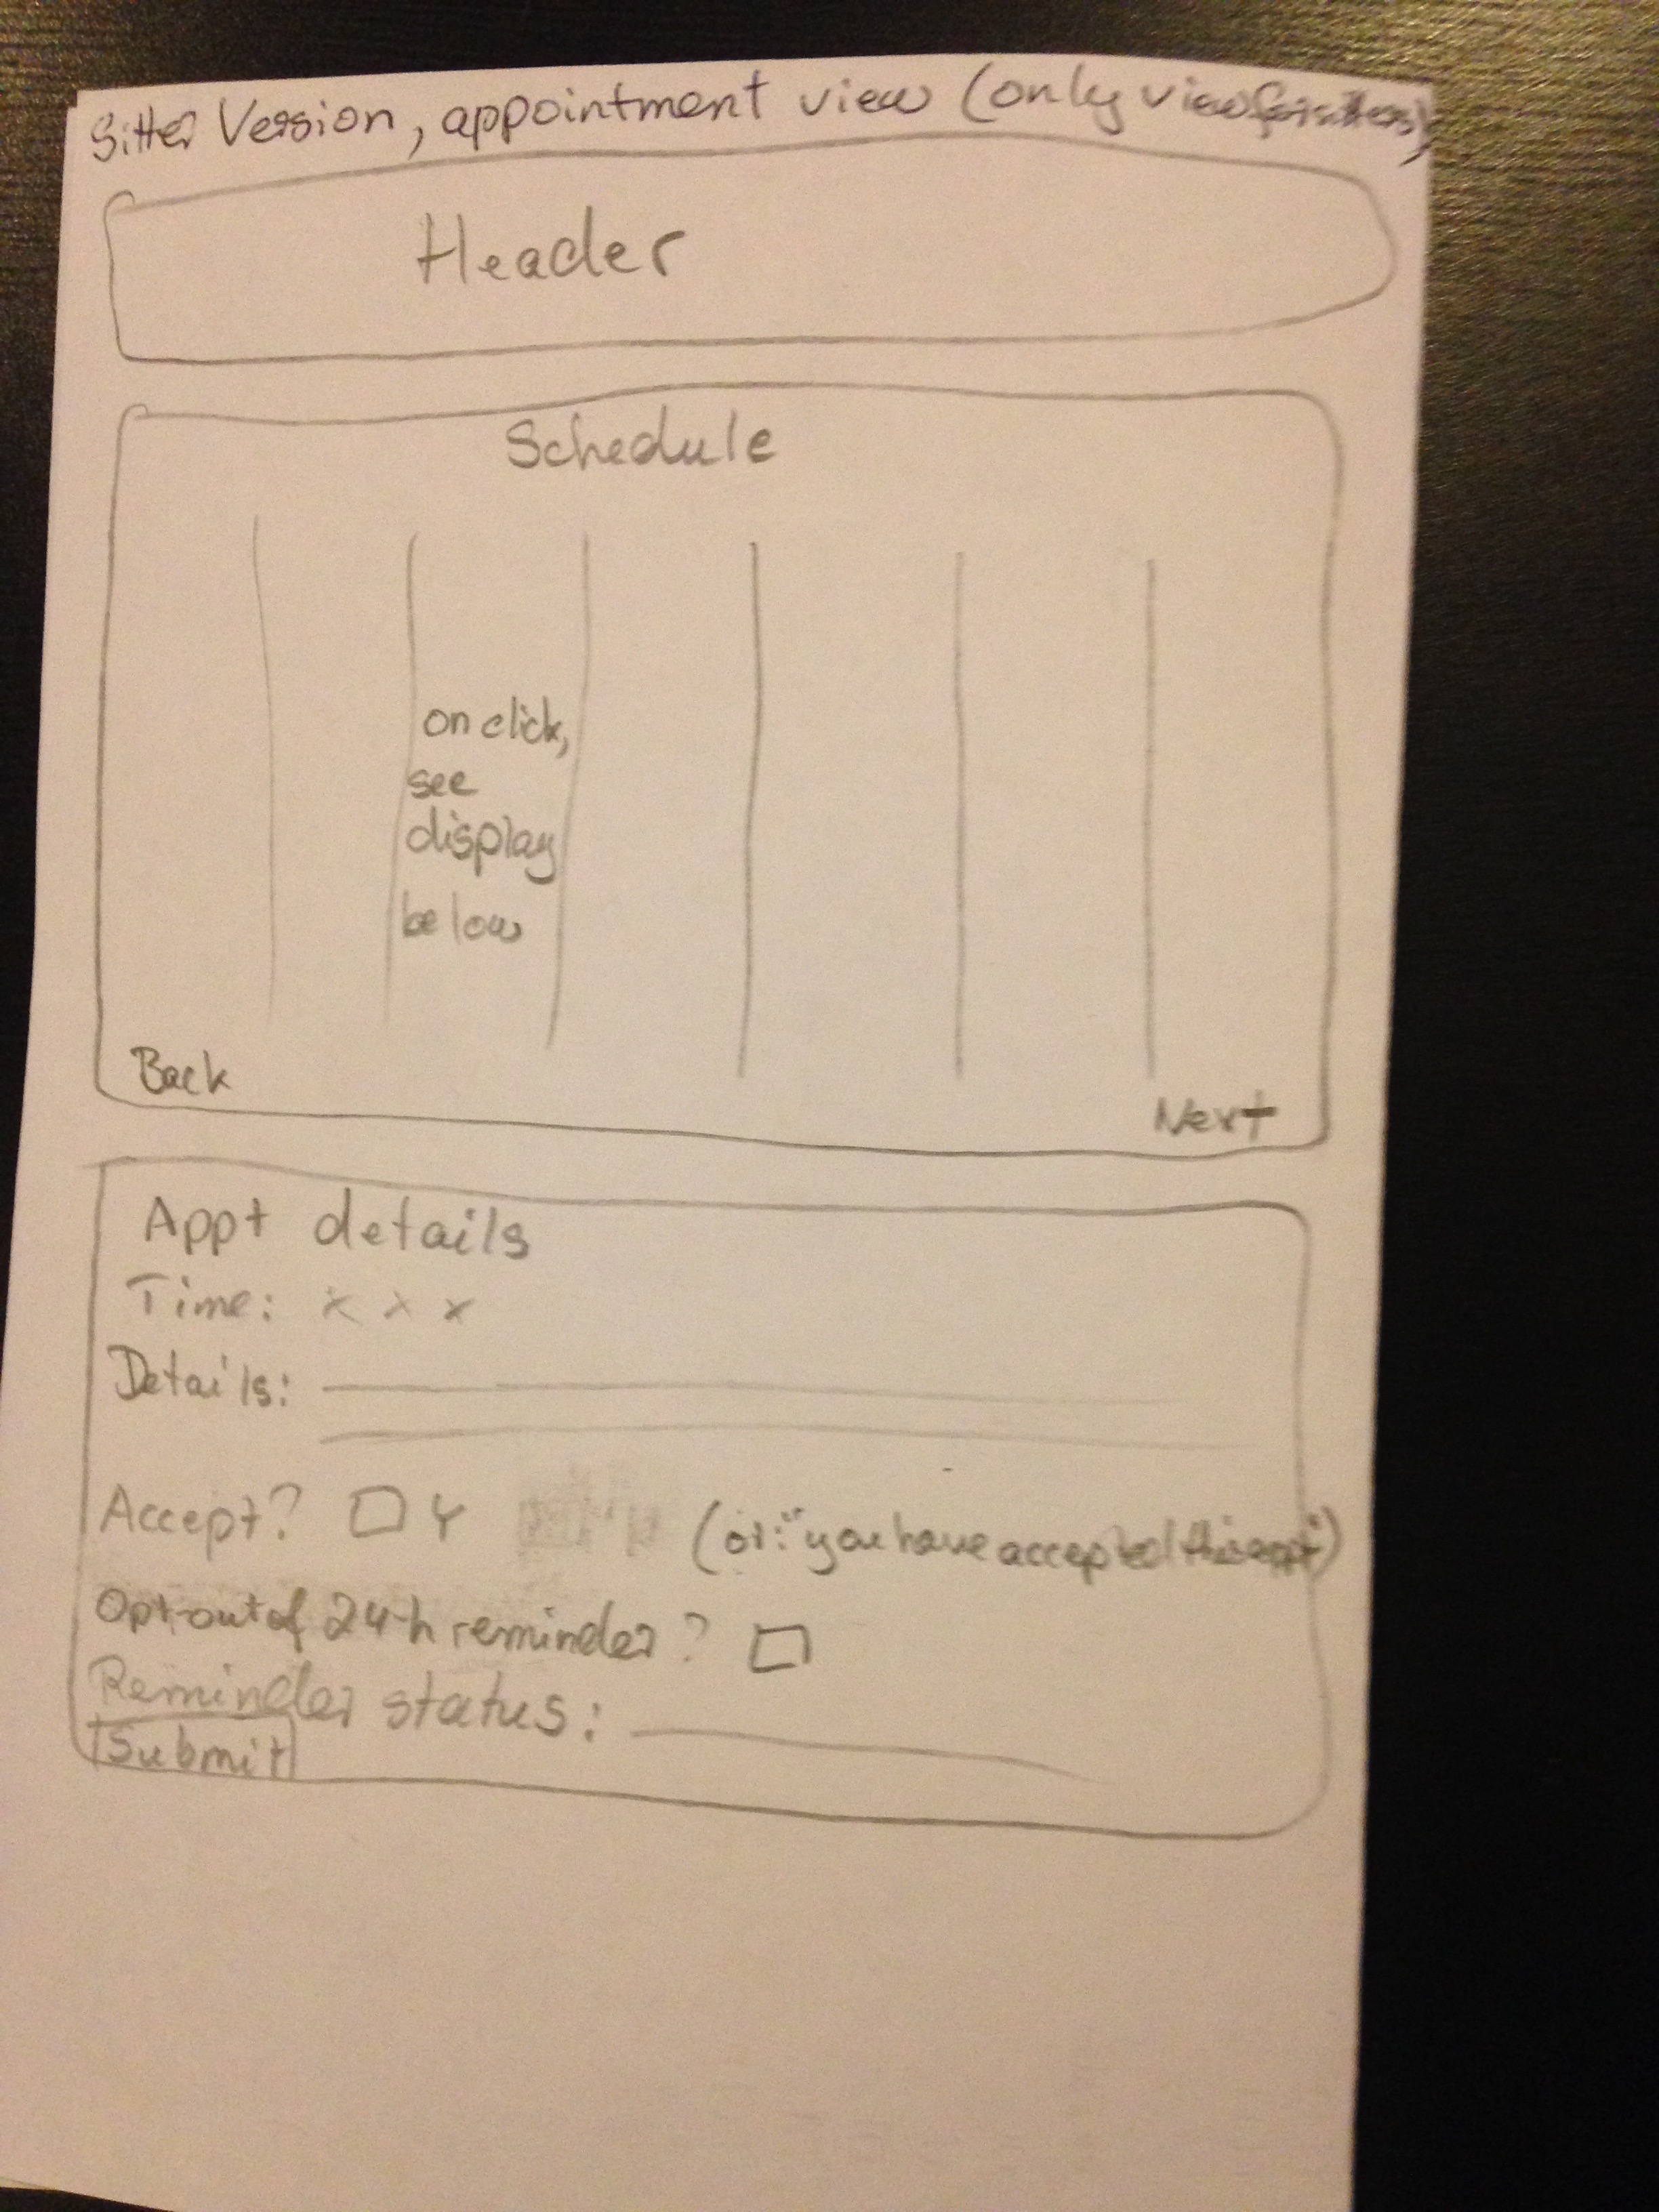 Sitter Version, appointment view (only view for sitters)
Header
Schedule
on click,
see
display
below
Back
Next
Appt details
Time: x x x
Details:
Accept? Y (or: "you have accepted this appt")
Opt-out of 24-h reminder?
Reminder status:
Submit